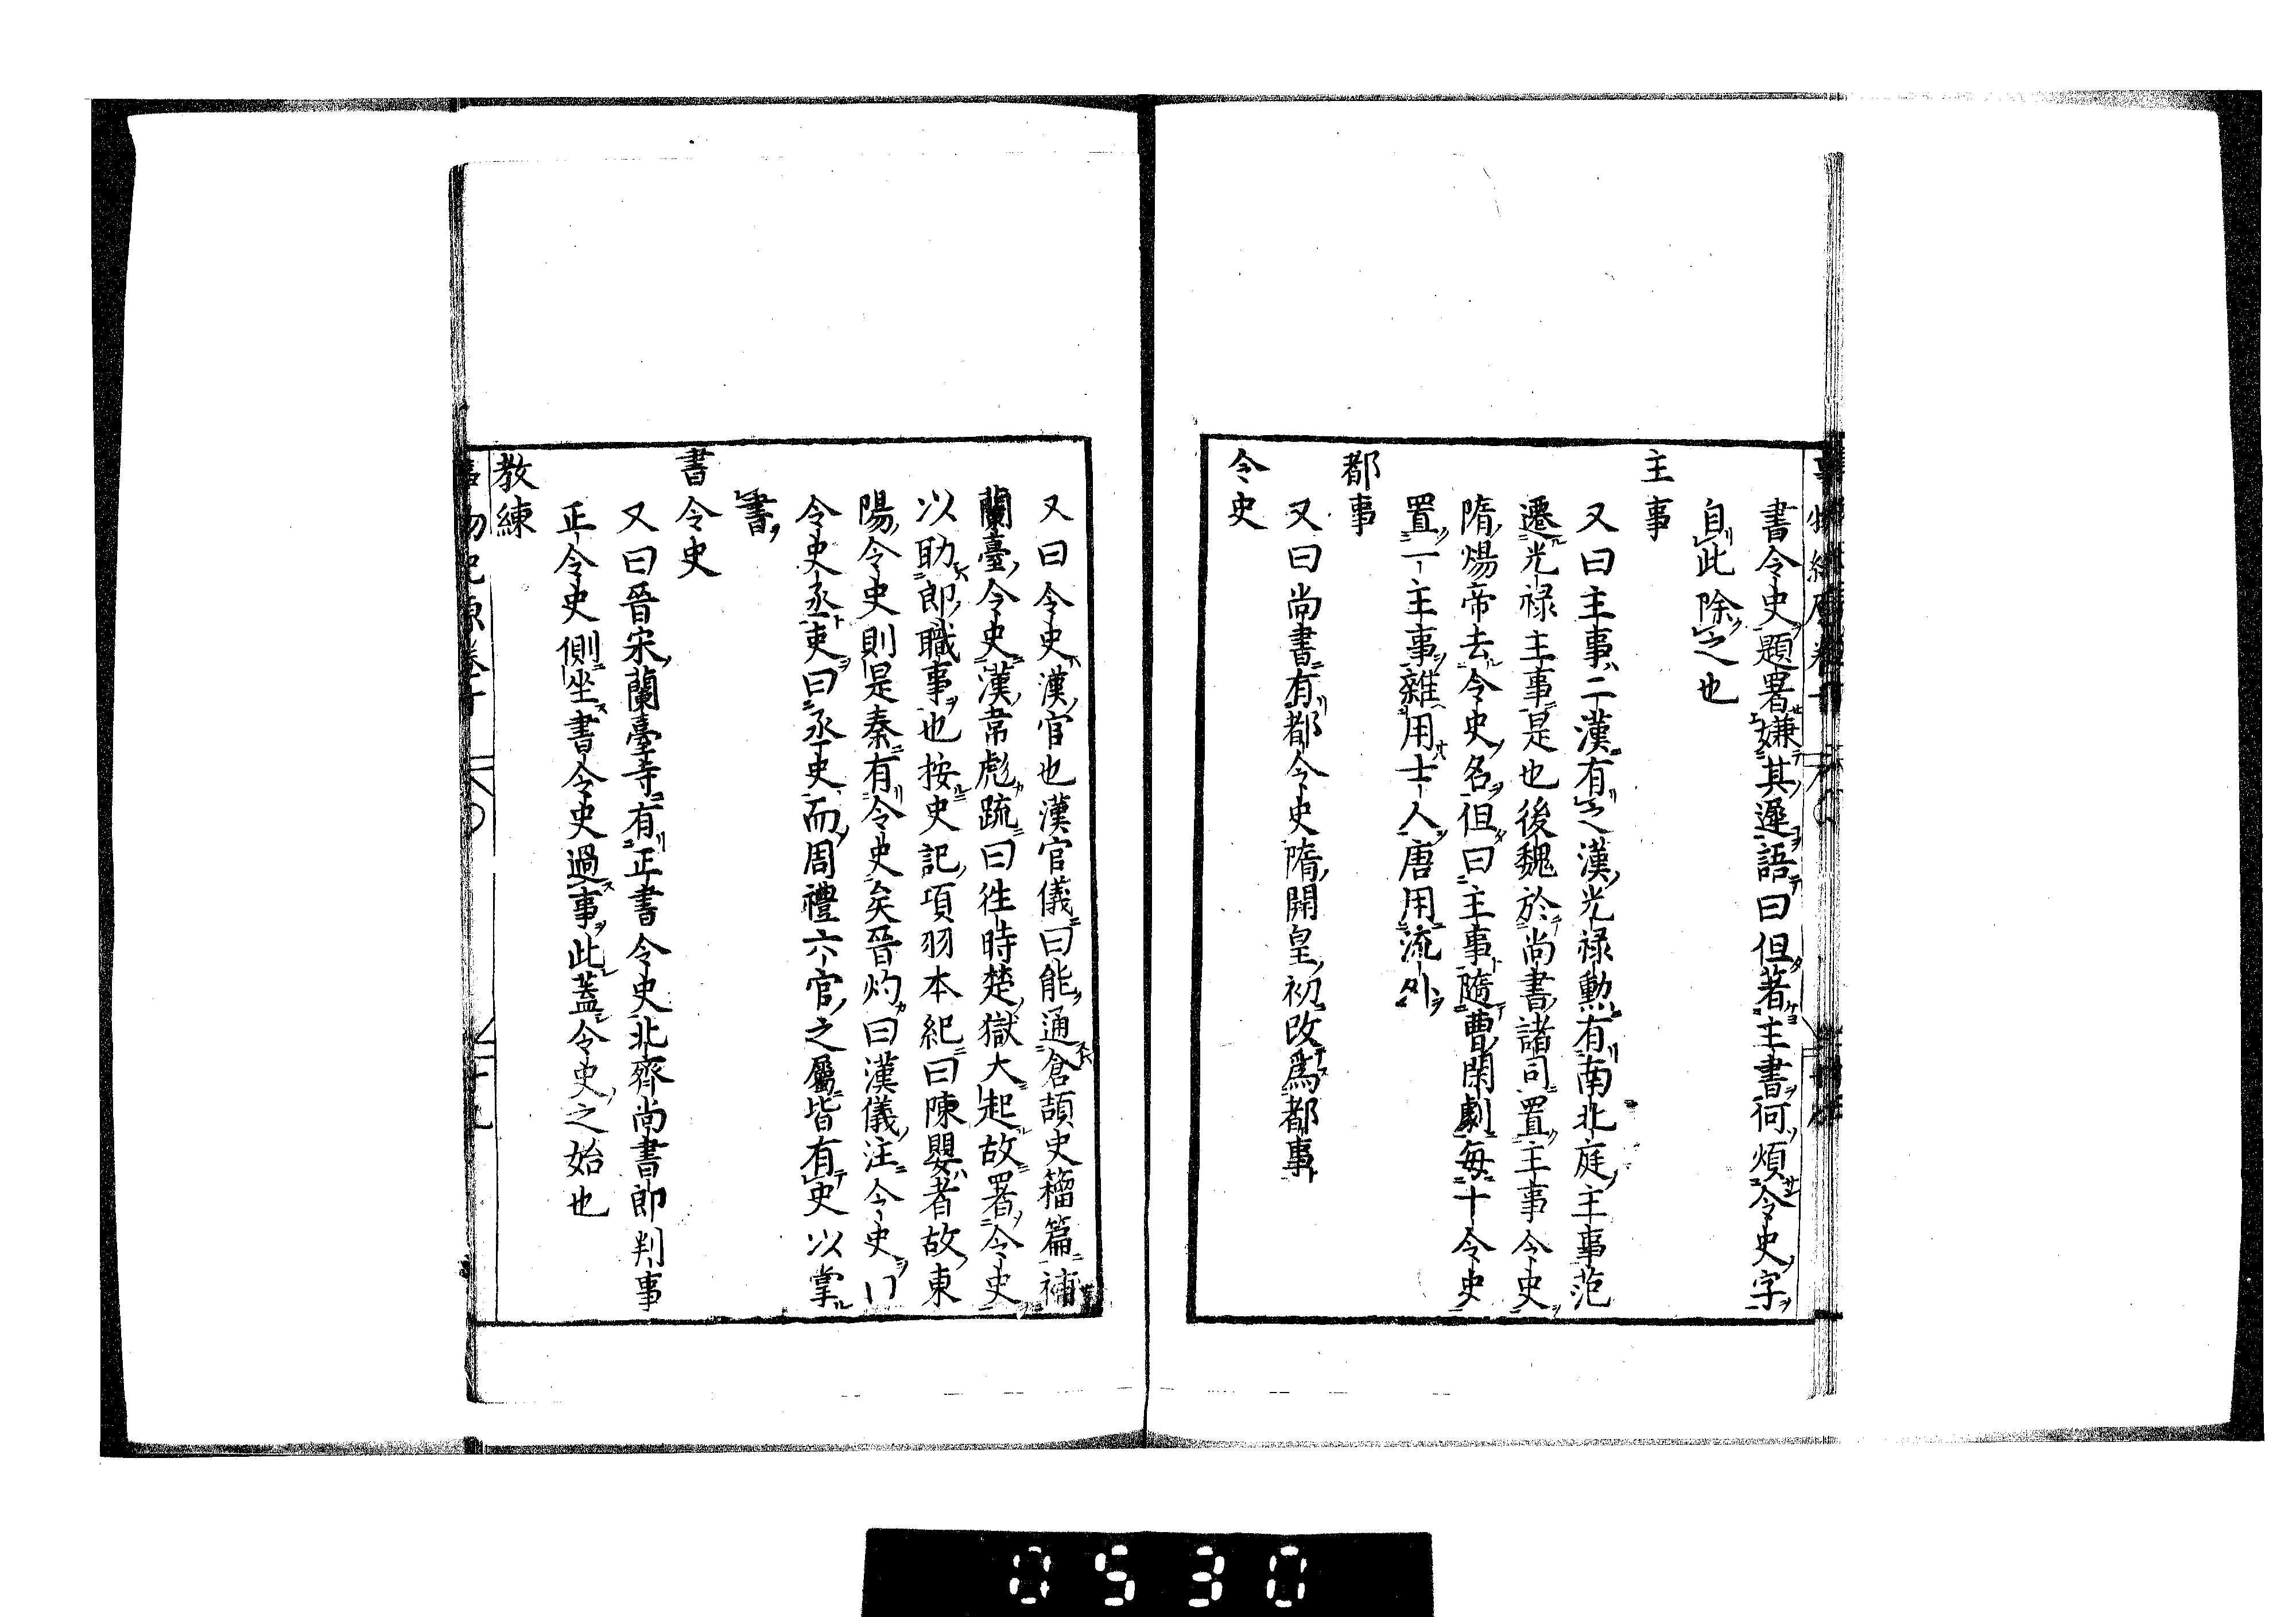 書令史題署嫌其遲語曰但著主書何煩令史字
自此除之也
主事
又曰主事二漢有之漢光禄勲有南北庭主事范
遷光禄主事是也後魏於尚書諸司置主事令史
隋煬帝去令史名但曰主事隨曹閑劇每十令史
置一主事雜用士人唐用流外
都事
又曰尚書有都令史隋開皇初改爲都事
令史
又曰令史漢官也漢官儀曰能通倉頡史籀篇補
蘭臺令史漢韋彪疏曰徃時楚獄大起故署令史
以助郎職事也按史記項羽本紀曰陳嬰者故東
陽令史則是秦有令史矣晉灼曰漢儀注令史
令史丞吏曰丞史而周禮六官之屬皆有史以掌
書
書令史
又曰晉宋蘭臺寺有正書令史北齊尚書郎判事
正令史側坐書令史過事此蓋令史之始也
教練